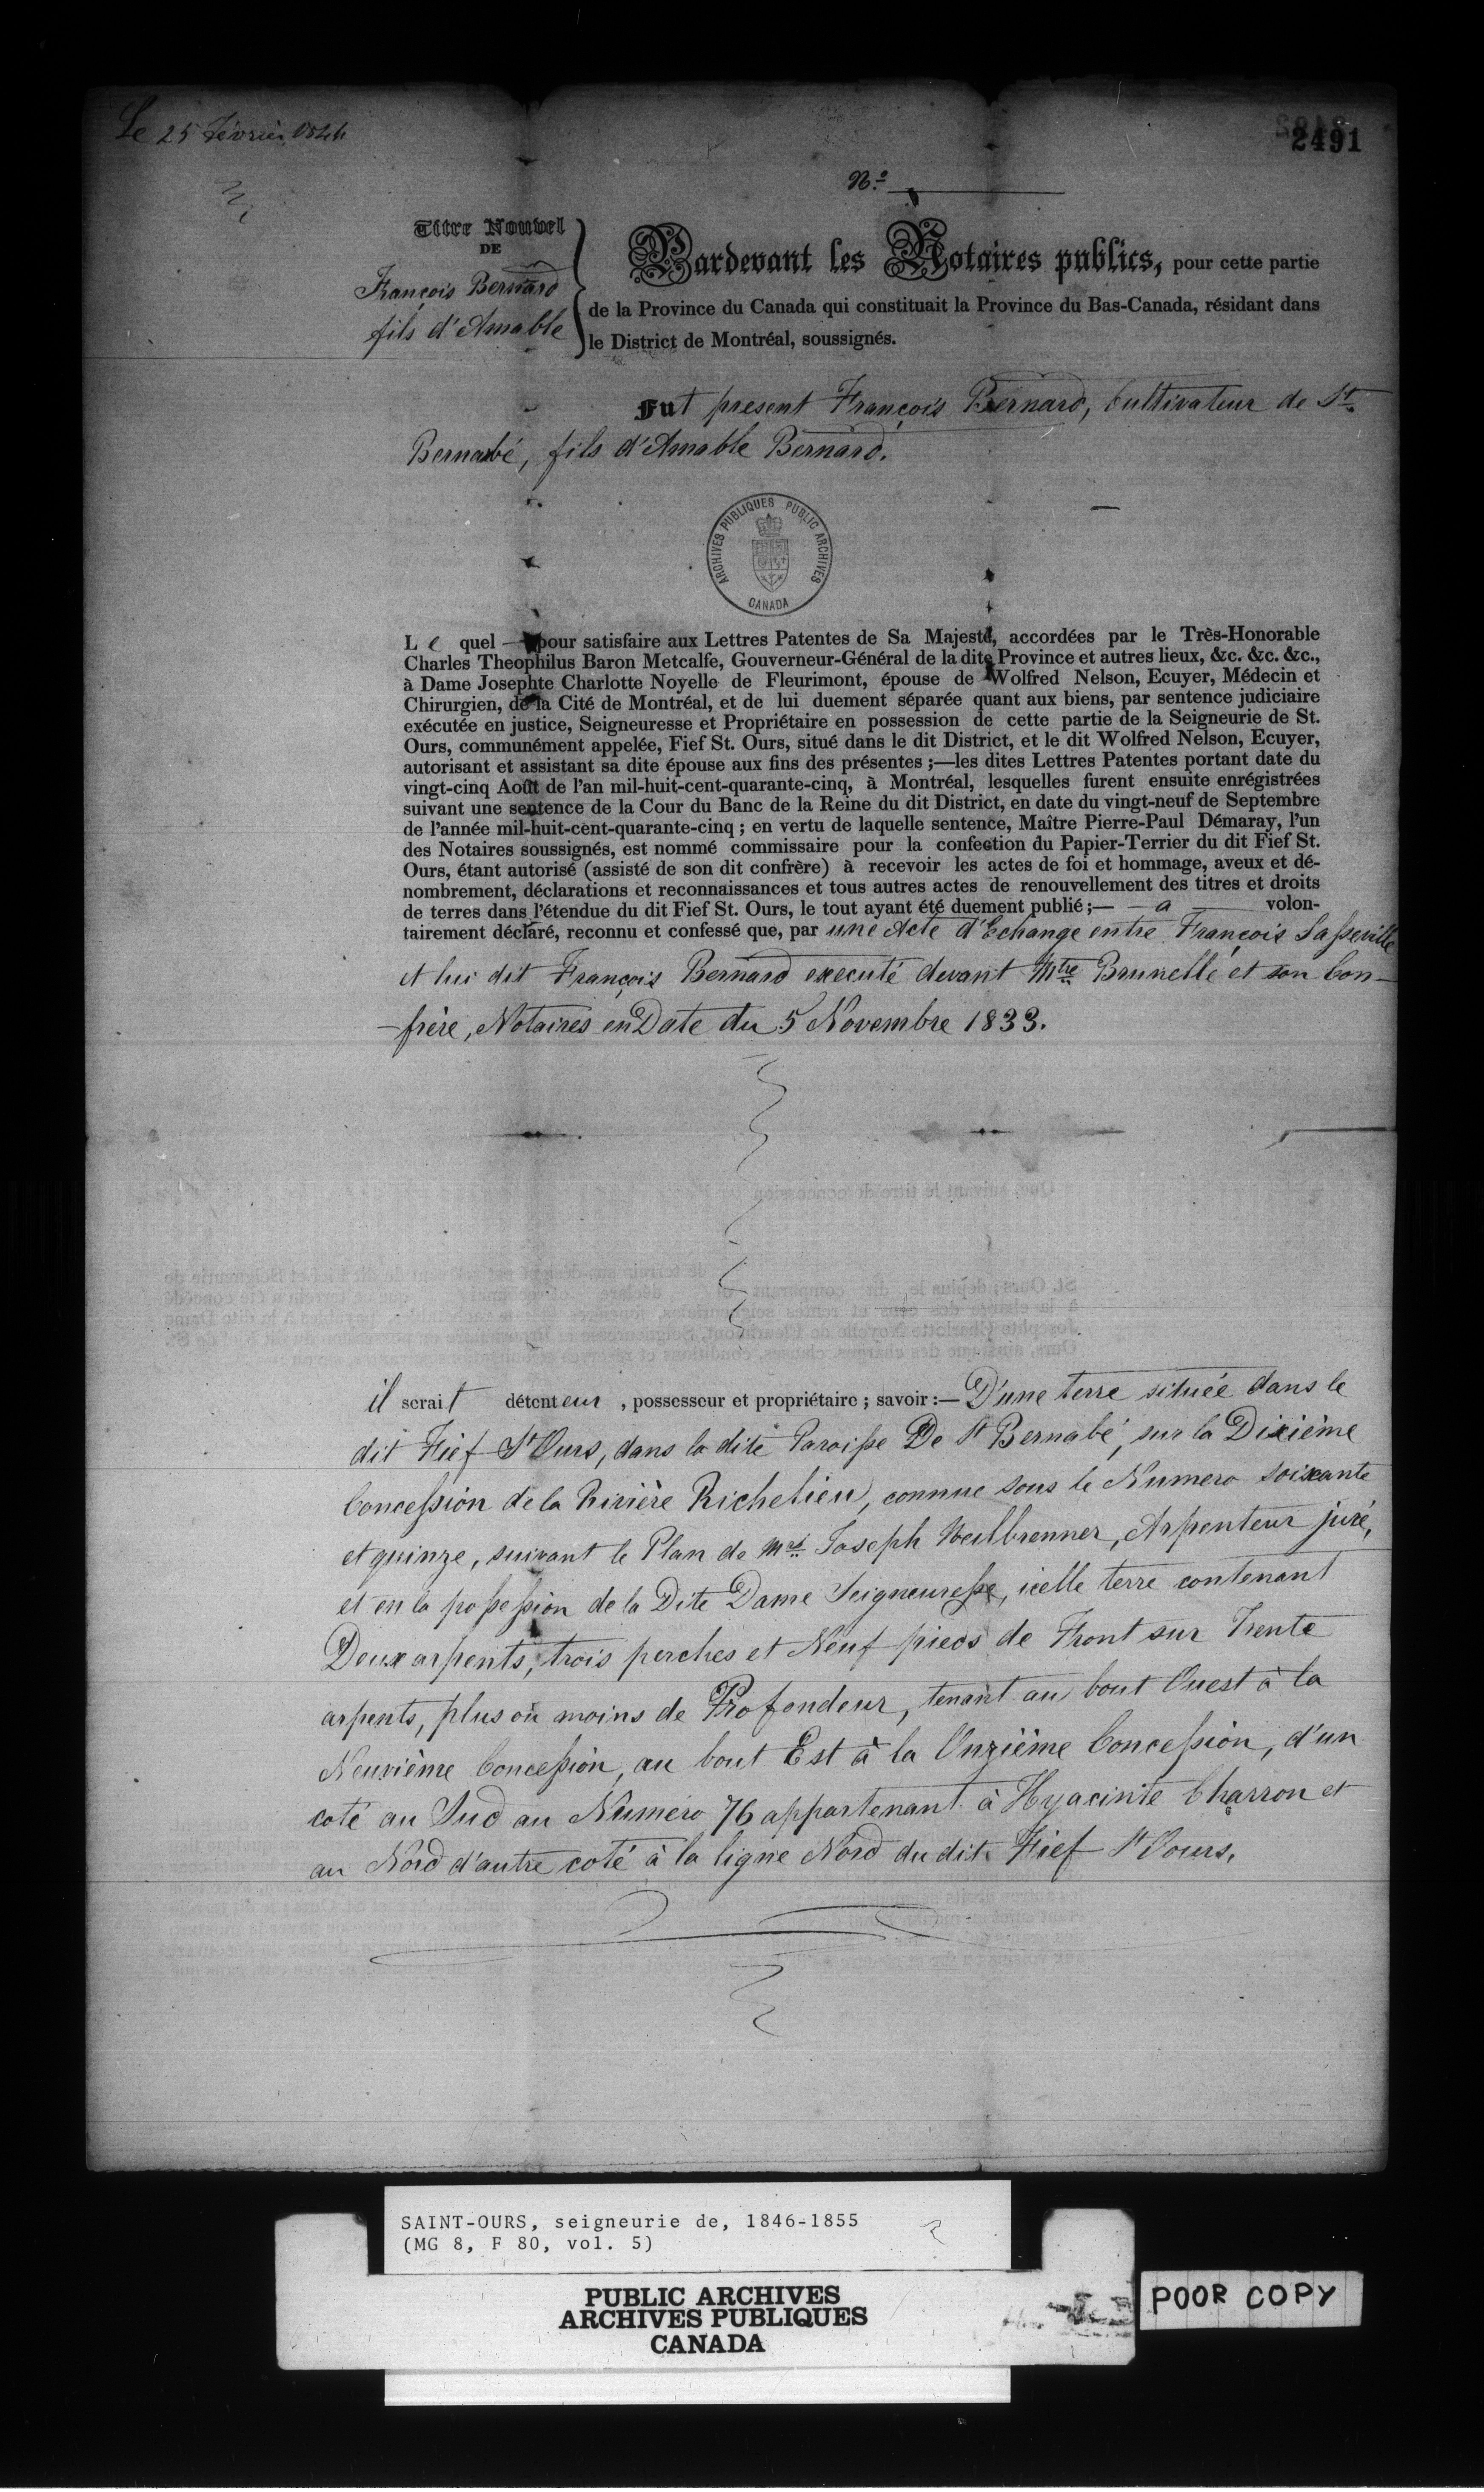 Le 25 Février 1846
2491
N.o
Titre Nouvel
DE
François Bernard
fils d'Amable
Pardevant les Notaires publics, pour cette partie
de la Province du Canada qui constituait la Province du Bas-Canada, résidant dans
le District de Montréal, soussignés.
Fut present François Bernard, Cultivateur de St.
Bernabé, fils d'Amable Bernard.
ARCHIVES PUBLIQUES PUBLIC ARCHIVES
CANADA
Le quel — pour satisfaire aux Lettres Patentes de Sa Majesté, accordées par le Très-Honorable
Charles Theophilus Baron Metcalfe, Gouverneur-Général de la dite Province et autres lieux, &c. &c. &c.,
à Dame Josephte Charlotte Noyelle de Fleurimont, épouse de Wolfred Nelson, Ecuyer, Médecin et
Chirurgien, de la Cité de Montréal, et de lui duement séparée quant aux biens, par sentence judiciaire
exécutée en justice, Seigneuresse et Propriétaire en possession de cette partie de la Seigneurie de St.
Ours, communément appelée, Fief St. Ours, situé dans le dit District, et le dit Wolfred Nelson, Ecuyer,
autorisant et assistant sa dite épouse aux fins des présentes ;—les dites Lettres Patentes portant date du
vingt-cinq Août de l'an mil-huit-cent-quarante-cinq, à Montréal, lesquelles furent ensuite enrégistrées
suivant une sentence de la Cour du Banc de la Reine du dit District, en date du vingt-neuf de Septembre
de l'année mil-huit-cent-quarante-cinq ; en vertu de laquelle sentence, Maître Pierre-Paul Démaray, l'un
des Notaires soussignés, est nommé commissaire pour la confection du Papier-Terrier du dit Fief St.
Ours, étant autorisé (assisté de son dit confrère) à recevoir les actes de foi et hommage, aveux et dé-
nombrement, déclarations et reconnaissances et tous autres actes de renouvellement des titres et droits
de terres dans l'étendue du dit Fief St. Ours, le tout ayant été duement publié ;— — a — volon-
tairement déclaré, reconnu et confessé que, par une Acte d'Echange entre François Lasseville
et lui dit François Bernard executé devant Mtre Brunelle et son Con-
-frère, Notaires en Date du 5 Novembre 1833.
il serait détenteur , possesseur et propriétaire ; savoir :— D'une terre située dans le
dit Fief St Ours, dans la dite Paroisse De St Bernabé, sur la Dixième
Concession de la Rivière Richelieu, connue sous le Numero soixante
et quinze, suivant le Plan de Joseph Weilbrenner, Arpenteur juré,
et en la possession de la Dite Dame Seigneuresse, icelle terre contenant
Deux arpents, trois perches et Neuf pieds de Front sur Trente
arpents, plus ou moins de Profondeur, tenant au bout Ouest à la
Neuvième Concession, au bout Est à la Onzième Concession, d'un
coté au Sud au Numéro 76 appartenant à Hyacinte Charron et
au Nord d'autre coté à la ligne Nord du dit Fief St Oours.
SAINT-OURS, seigneurie de, 1846-1855
(MG 8, F 80, vol. 5)
PUBLIC ARCHIVES
ARCHIVES PUBLIQUES
CANADA
POOR COPY